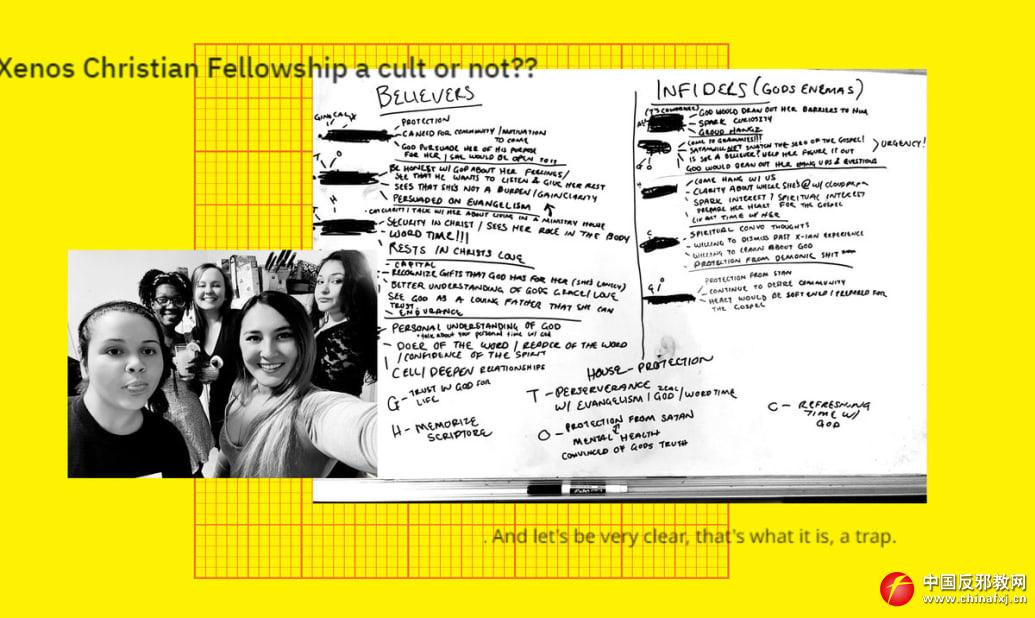 Xenos Christian Fellowship a cult or not??
BELIEVERS
PROTECTION
CA NEED FOR COMMUNITY/MOTIVATION
TO COME
GOD PURSUADE HER OF HIS PURPOSE
FOR HER / SHE WOULD BE OPEN TO IT
BE HONEST W/ GOD ABOUT HER FEELINGS/
SEE THAT HE WANTS TO LISTEN & GIVE HER REST
SEES THAT SHE'S NOT A BURDEN/GAIN CLARITY
PERSUADED ON EVANGELISM
TALK W/ HER ABOUT LIVING IN A MINISTRY HOUSE
SECURITY IN CHRIST / SEES HER ROLE IN THE BODY
WORD TIME!!!
RESTS IN CHRISTS LOVE
CAPITAL
RECOGNIZE GIFTS THAT GOD HAS FOR HER (SHE'S LONELY)
BETTER UNDERSTANDING OF GODS GRACE/LOVE
SEE GOD AS A LOVING FATHER THAT SHE CAN
TRUST
ENDURANCE
PERSONAL UNDERSTANDING OF GOD
talk about your personal time w/ God
DOER OF THE WORD / READER OF THE WORD
/CONFIDENCE OF THE SPIRIT
CELL/DEEPEN RELATIONSHIPS
G- TRUST IN GOD FOR
LIFE
H- MEMORIZE
SCRIPTURE
INFIDERS (GODS ENEMAS)
GOD WOULD DRAW OUT HER BARRIERS TO HIM
SPARK CURIOSITY
GROUP HANGZ
SATAN WILL NOT SNATCH THE SEED OF THE GOSPEL!
IS SHE A BELIEVER? HELP HER FIGURE IT OUT
GOD WOULD DRAW OUT HER HANG UPS & QUESTIONS
URGENCY!
COME HANG W/ US
CLARITY ABOUT WHERE SHE'S @ W/
SPARK INTEREST / SPIRITUAL INTEREST
PREPARE HER HEART FOR THE GOSPEL
SPIRITUAL CONVO THOUGHTS
WILLING TO DISMISS PAST X-IAN EXPERIENCE
WILLING TO LEARN ABOUT GOD
PROTECTION FROM DEMONIC SHIT
PROTECTION FROM STAN
CONTINUE TO DESIRE COMMUNITY
HEART WOULD BE SOFTENED/PREPARED FOR
THE GOSPEL
HOUSE - PROTECTION
T- PERSERVERANCE ZEAL/
W/ EVANGELISM / GOD / WORD TIME
O- PROTECTION FROM SATAN
MENTAL HEALTH
CONVINCED OF GODS TRUTH
C- REFRESHING
TIME W/
GOD
. And let's be very clear, that's what it is, a trap.
中国反邪教网
www.chinafxj.cn